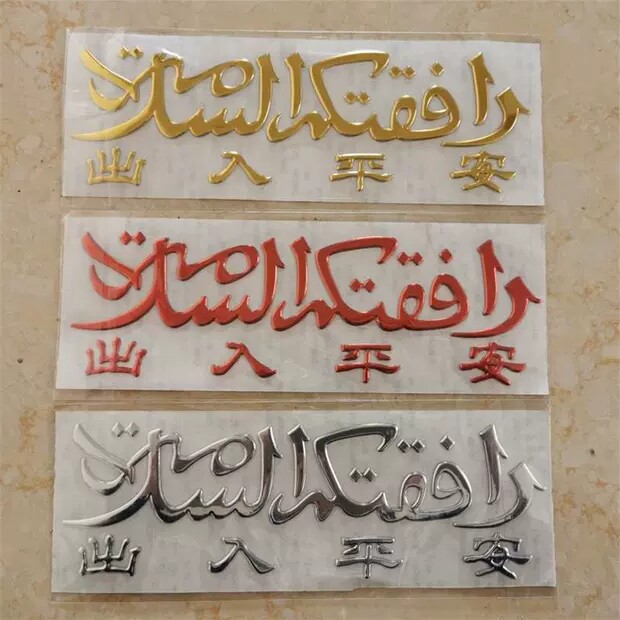 رافقتكم السلامة
出入平安
رافقتكم السلامة
出入平安
رافقتكم السلامة
出入平安